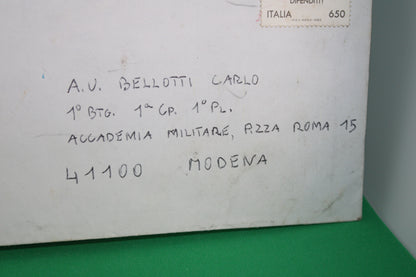 DIFENDITI
ITALIA 650
A.U. BELLOTTI CARLO
1° BTG. 1ª CP. 1° PL.
ACCADEMIA MILITARE, P.ZZA ROMA 15
41100 MODENA